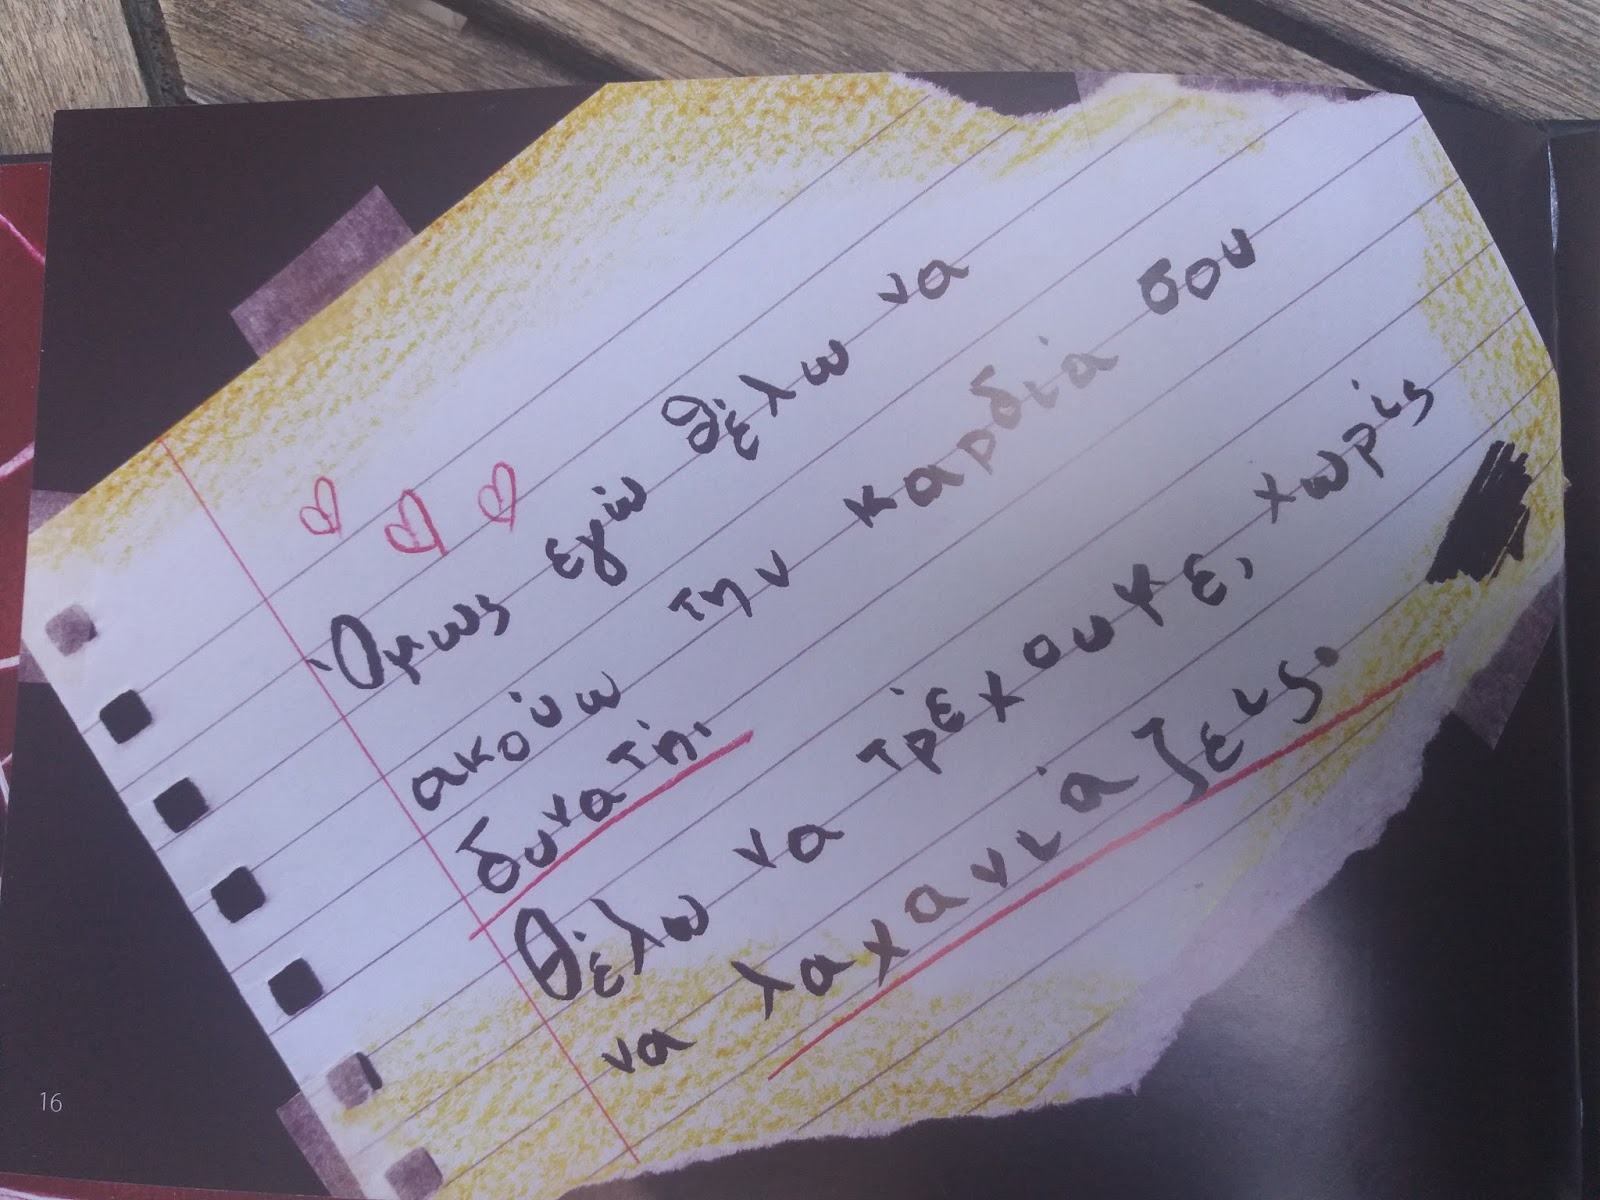 Όμως εγώ θέλω να
ακούω την καρδιά σου
δυνατή.
Θέλω να τρέχουμε, χωρίς
να λαχανιάζεις.
16